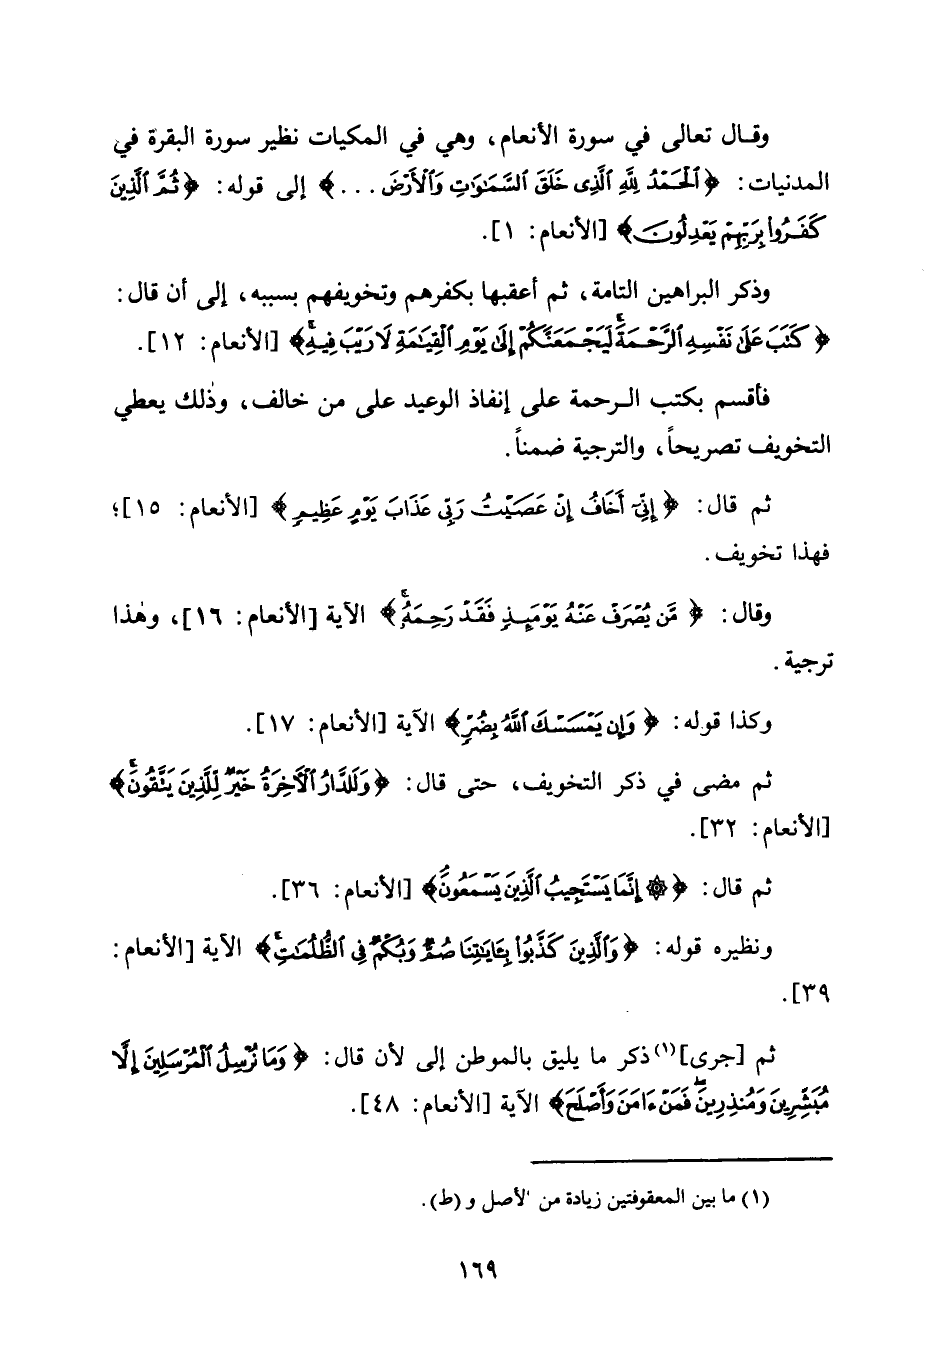 وقـال تعالى في سورة الأنعام، وهي في المكيات نظير سورة البقرة في
المدنيات: ﴿ٱلْحَمْدُ لِلَّهِ ٱلَّذِى خَلَقَ ٱلسَّمَٰوَٰتِ وَٱلْأَرْضَ ...﴾ إلى قوله: ﴿ثُمَّ ٱلَّذِينَ
كَفَرُوا۟ بِرَبِّهِمْ يَعْدِلُونَ﴾ [الأنعام: ١].
وذكر البراهين التامة، ثم أعقبها بكفرهم وتخويفهم بسببه، إلى أن قال:
﴿كَتَبَ عَلَىٰ نَفْسِهِ ٱلرَّحْمَةَ ۚ لَيَجْمَعَنَّكُمْ إِلَىٰ يَوْمِ ٱلْقِيَٰمَةِ لَا رَيْبَ فِيهِ ۚ﴾ [الأنعام: ١٢].
فأقسم بكتب الـرحمة على إنفاذ الوعيد على من خالف، وذٰلك يعطي
التخويف تصريحاً، والترجية ضمناً.
ثم قال: ﴿إِنِّىٓ أَخَافُ إِنْ عَصَيْتُ رَبِّى عَذَابَ يَوْمٍ عَظِيمٍ﴾ [الأنعام: ١٥]؛
فهذا تخويف.
وقال: ﴿مَّن يُصْرَفْ عَنْهُ يَوْمَئِذٍ فَقَدْ رَحِمَهُۥ ۚ﴾ الآية [الأنعام: ١٦]، وهٰذا
ترجية.
وكذا قوله: ﴿وَإِن يَمْسَسْكَ ٱللَّهُ بِضُرٍّ﴾ الآية [الأنعام: ١٧].
ثم مضى في ذكر التخويف، حتى قال: ﴿وَلَلدَّارُ ٱلْءَاخِرَةُ خَيْرٌ لِّلَّذِينَ يَتَّقُونَ ۗ﴾
[الأنعام: ٣٢].
ثم قال: ﴿۞ إِنَّمَا يَسْتَجِيبُ ٱلَّذِينَ يَسْمَعُونَ ۘ﴾ [الأنعام: ٣٦].
ونظيره قوله: ﴿وَٱلَّذِينَ كَذَّبُوا۟ بِـَٔايَٰتِنَا صُمٌّ وَبُكْمٌ فِى ٱلظُّلُمَٰتِ ۗ﴾ الآية [الأنعام:
٣٩].
ثم [جرى](١) ذكر ما يليق بالموطن إلى لأن قال: ﴿وَمَا نُرْسِلُ ٱلْمُرْسَلِينَ إِلَّا
مُبَشِّرِينَ وَمُنذِرِينَ ۖ فَمَنْ ءَامَنَ وَأَصْلَحَ﴾ الآية [الأنعام: ٤٨].
(١) ما بين المعقوفتين زيادة من الأصل و (ط).
١٦٩